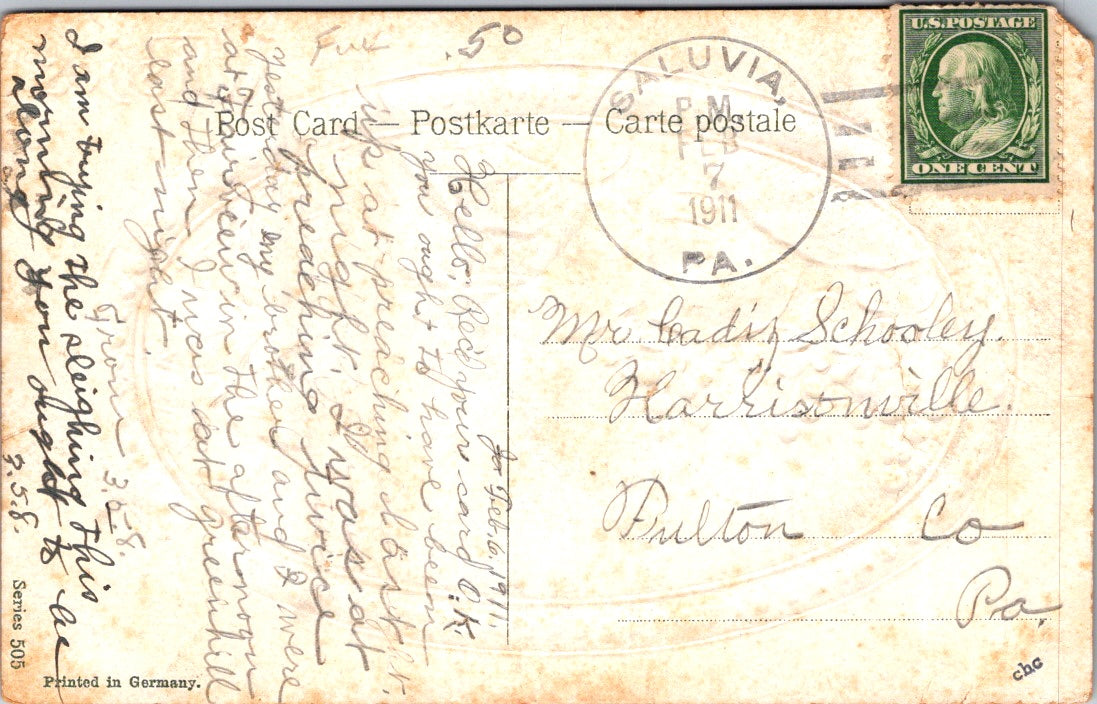 .50
Post Card — Postkarte — Carte postale
U.S. POSTAGE
ONE CENT
SALUVIA,
P.M.
FEB
7
1911
PA.
Mr Cadis Schooley.
Harrisonville.
Fulton Co
Pa.
chc
Feb. 6, 1911.
Hello, Rec'd yours card O.K.
you ought to have been
up at preaching last
night. I was at
preaching twice
yesterday my brother and I were
at in the afternoon
and then I was at greenhill
last-night.
From 3.5-8.
I am trying the sleighing this
morning you ought to be
along 3.5-8.
Series 505
Printed in Germany.